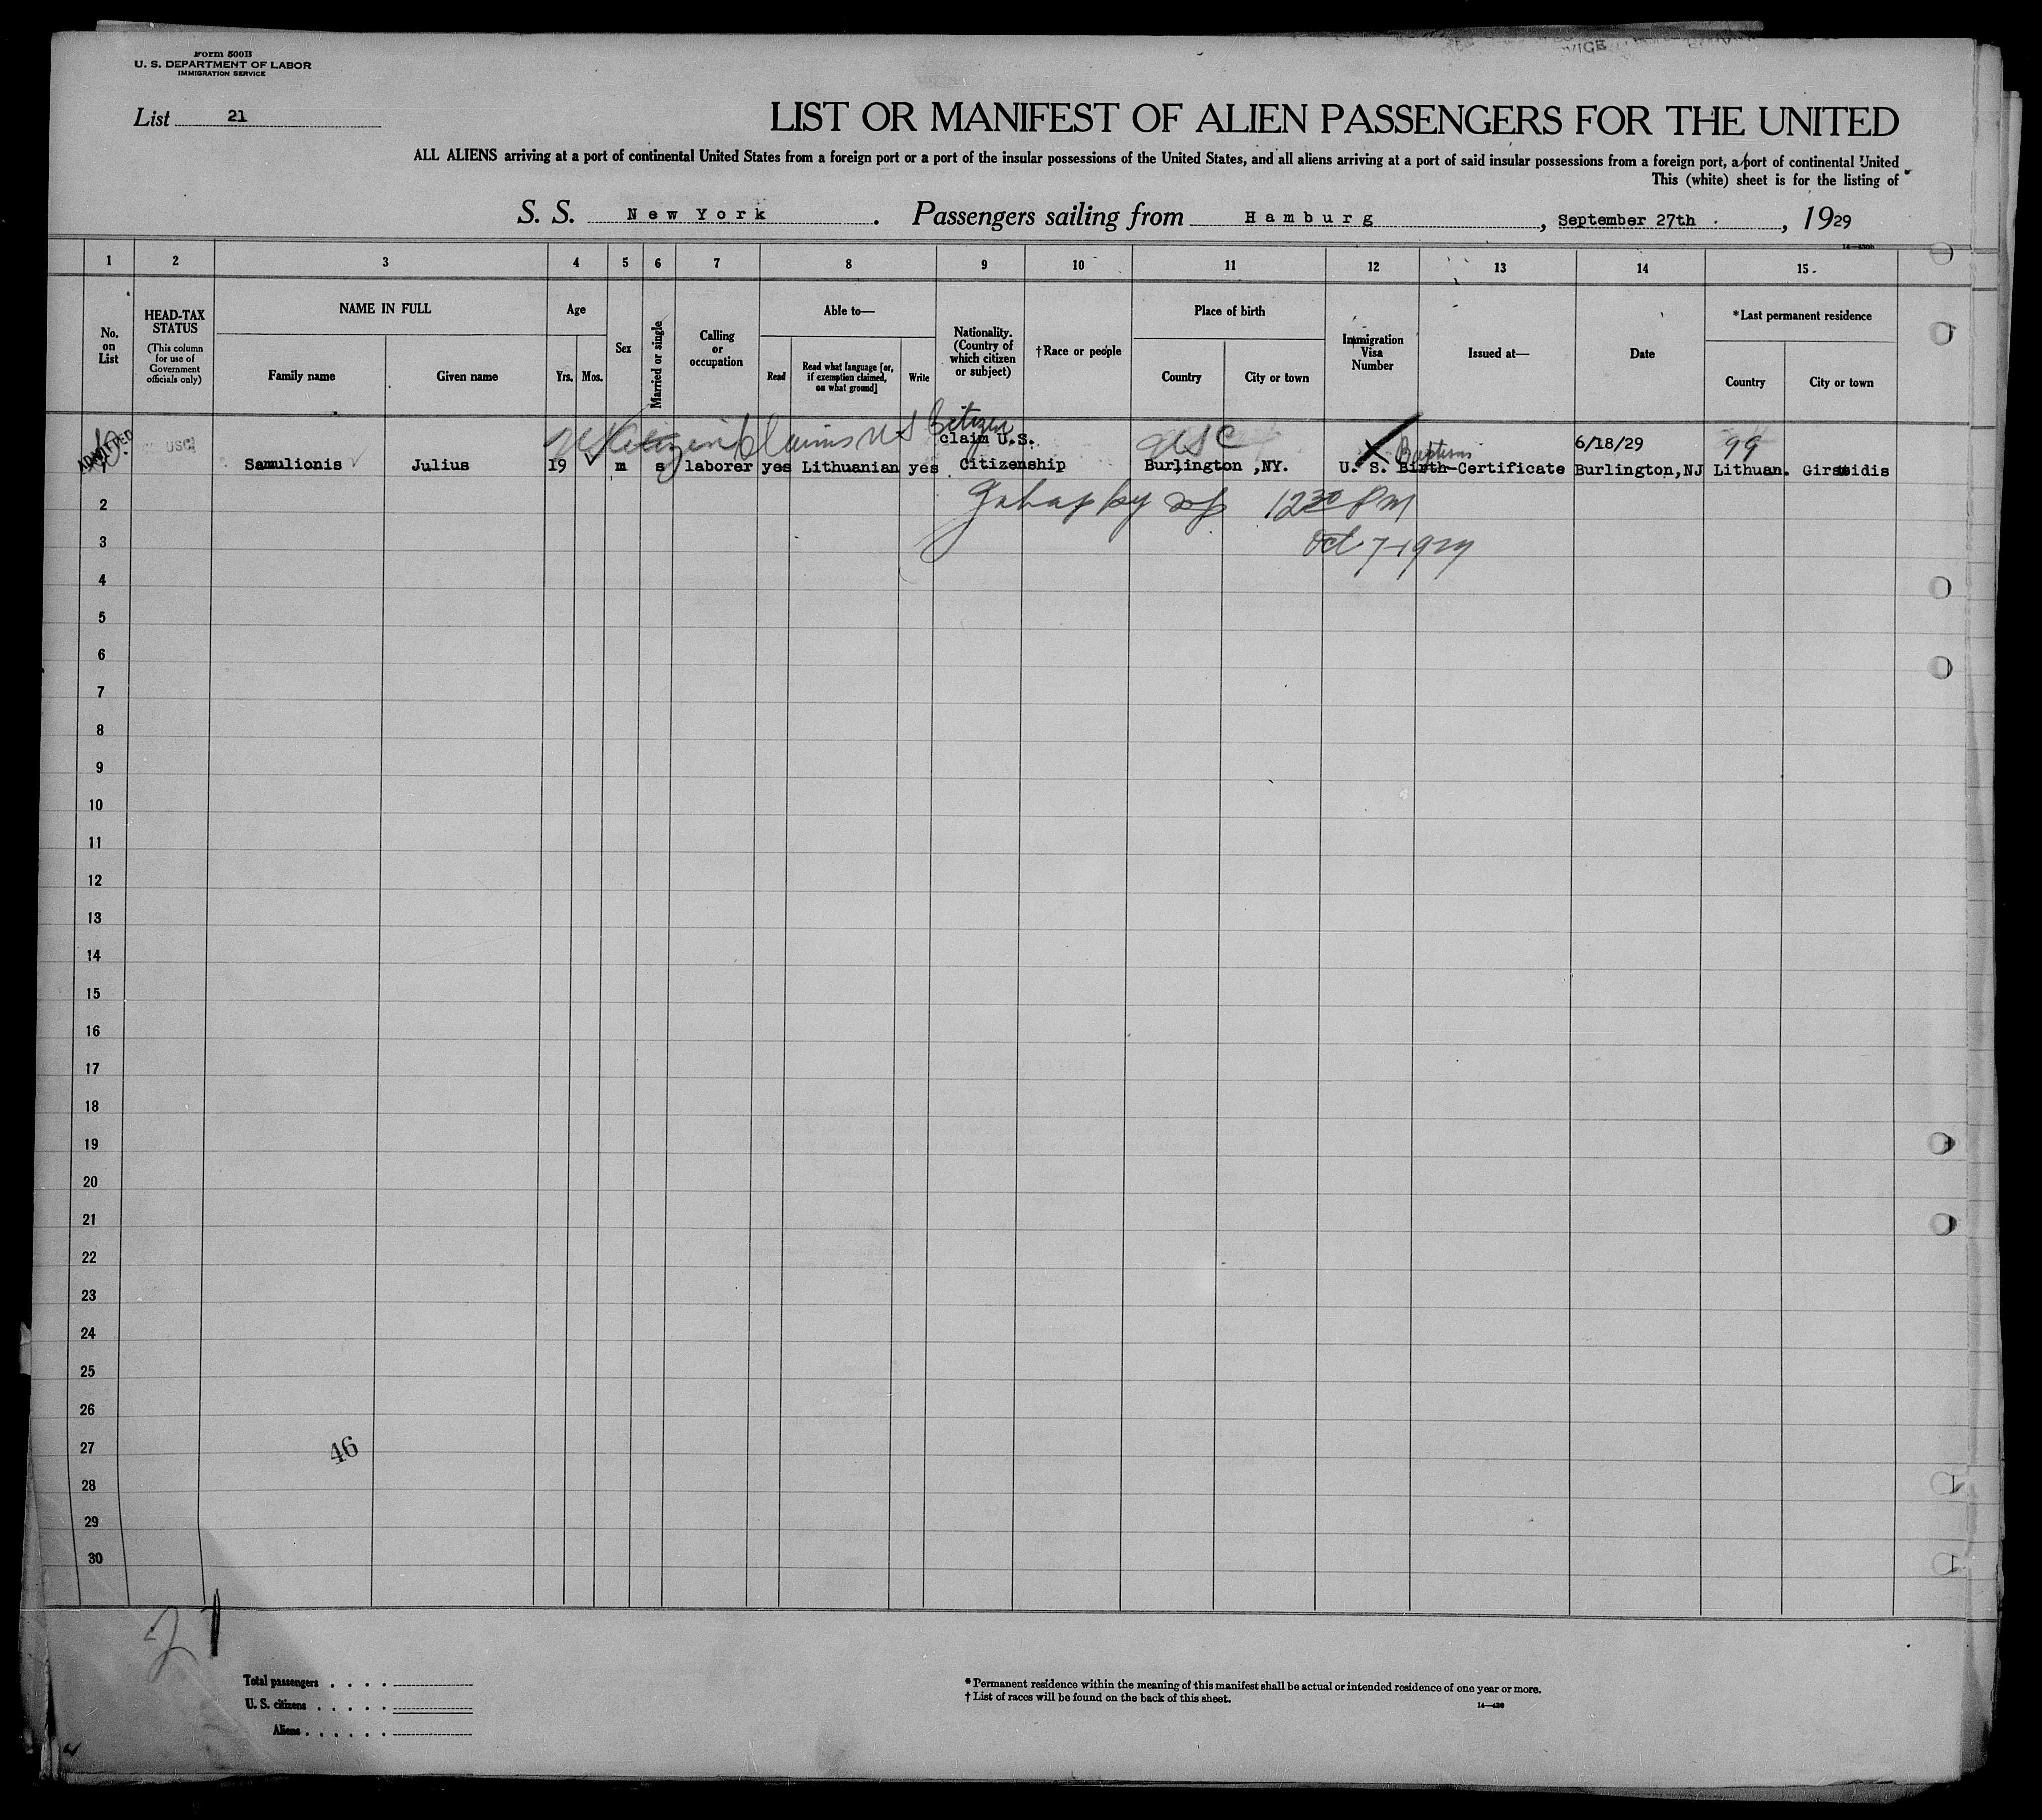 Form 500B
U. S. DEPARTMENT OF LABOR
IMMIGRATION SERVICE
VICE
List 21
LIST OR MANIFEST OF ALIEN PASSENGERS FOR THE UNITED
ALL ALIENS arriving at a port of continental United States from a foreign port or a port of the insular possessions of the United States, and all aliens arriving at a port of said insular possessions from a foreign port, a port of continental United
This (white) sheet is for the listing of
S. S. New York. Passengers sailing from Hamburg, September 27th, 1929
1 2 3 4 5 6 7 8 9 10 11 12 13 14 15
No. on List
HEAD-TAX STATUS
(This column for use of Government officials only)
NAME IN FULL
Family name
Given name
Age
Yrs. Mos.
Sex
Married or single
Calling or occupation
Able to—
Read
Read what language [or, if exemption claimed, on what ground]
Write
Nationality. (Country of which citizen or subject)
†Race or people
Place of birth
Country
City or town
Immigration Visa Number
Issued at—
Date
*Last permanent residence
Country
City or town
ADMITTED
USC
Claims US Citizen
claim U.S.
USC
Baptism
6/18/29
99
Samulionis Julius 19 m s laborer yes Lithuanian yes Citizenship Burlington ,NY. U. S. Birth-Certificate Burlington,NJ Lithuan.
2 12 30 PM
3 Oct 7-1929
4
5
6
7
8
9
10
11
12
13
14
15
16
17
18
19
20
21
22
23
24
25
26
27
46
28
29
30
21
Total passengers
U. S. citizens
Aliens
* Permanent residence within the meaning of this manifest shall be actual or intended residence of one year or more.
† List of races will be found on the back of this sheet.
14—430